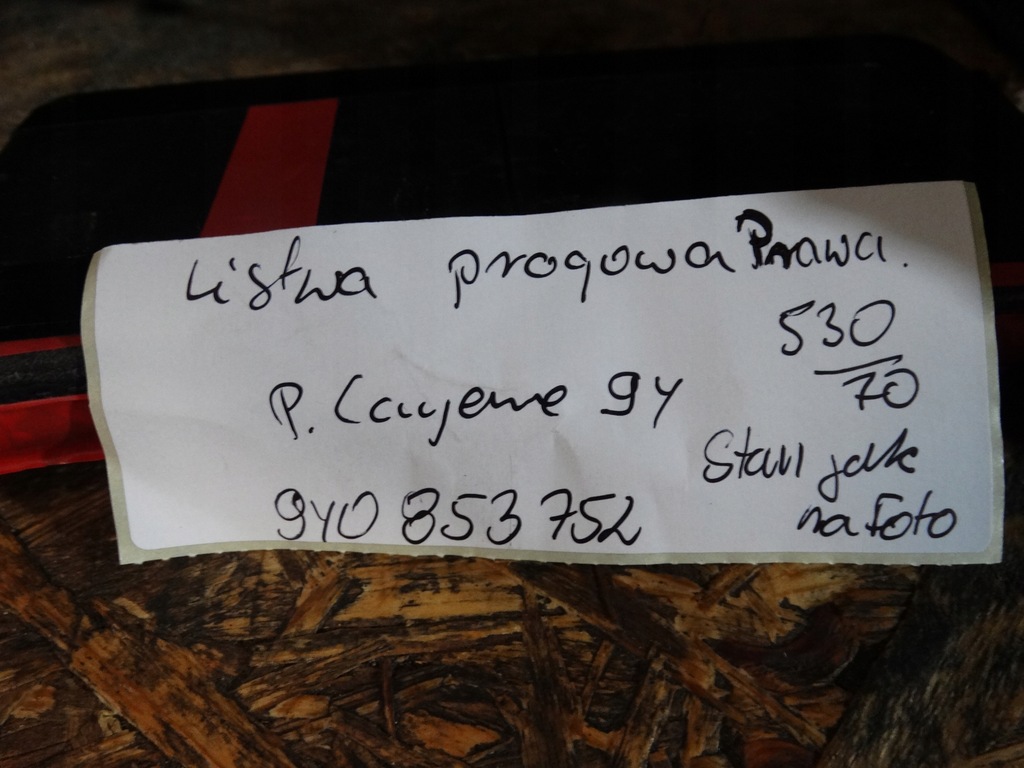 Listwa progowa Prawa.
530
70
P. Cayenne 9Y
9Y0 853 752
Stan jak
na Foto